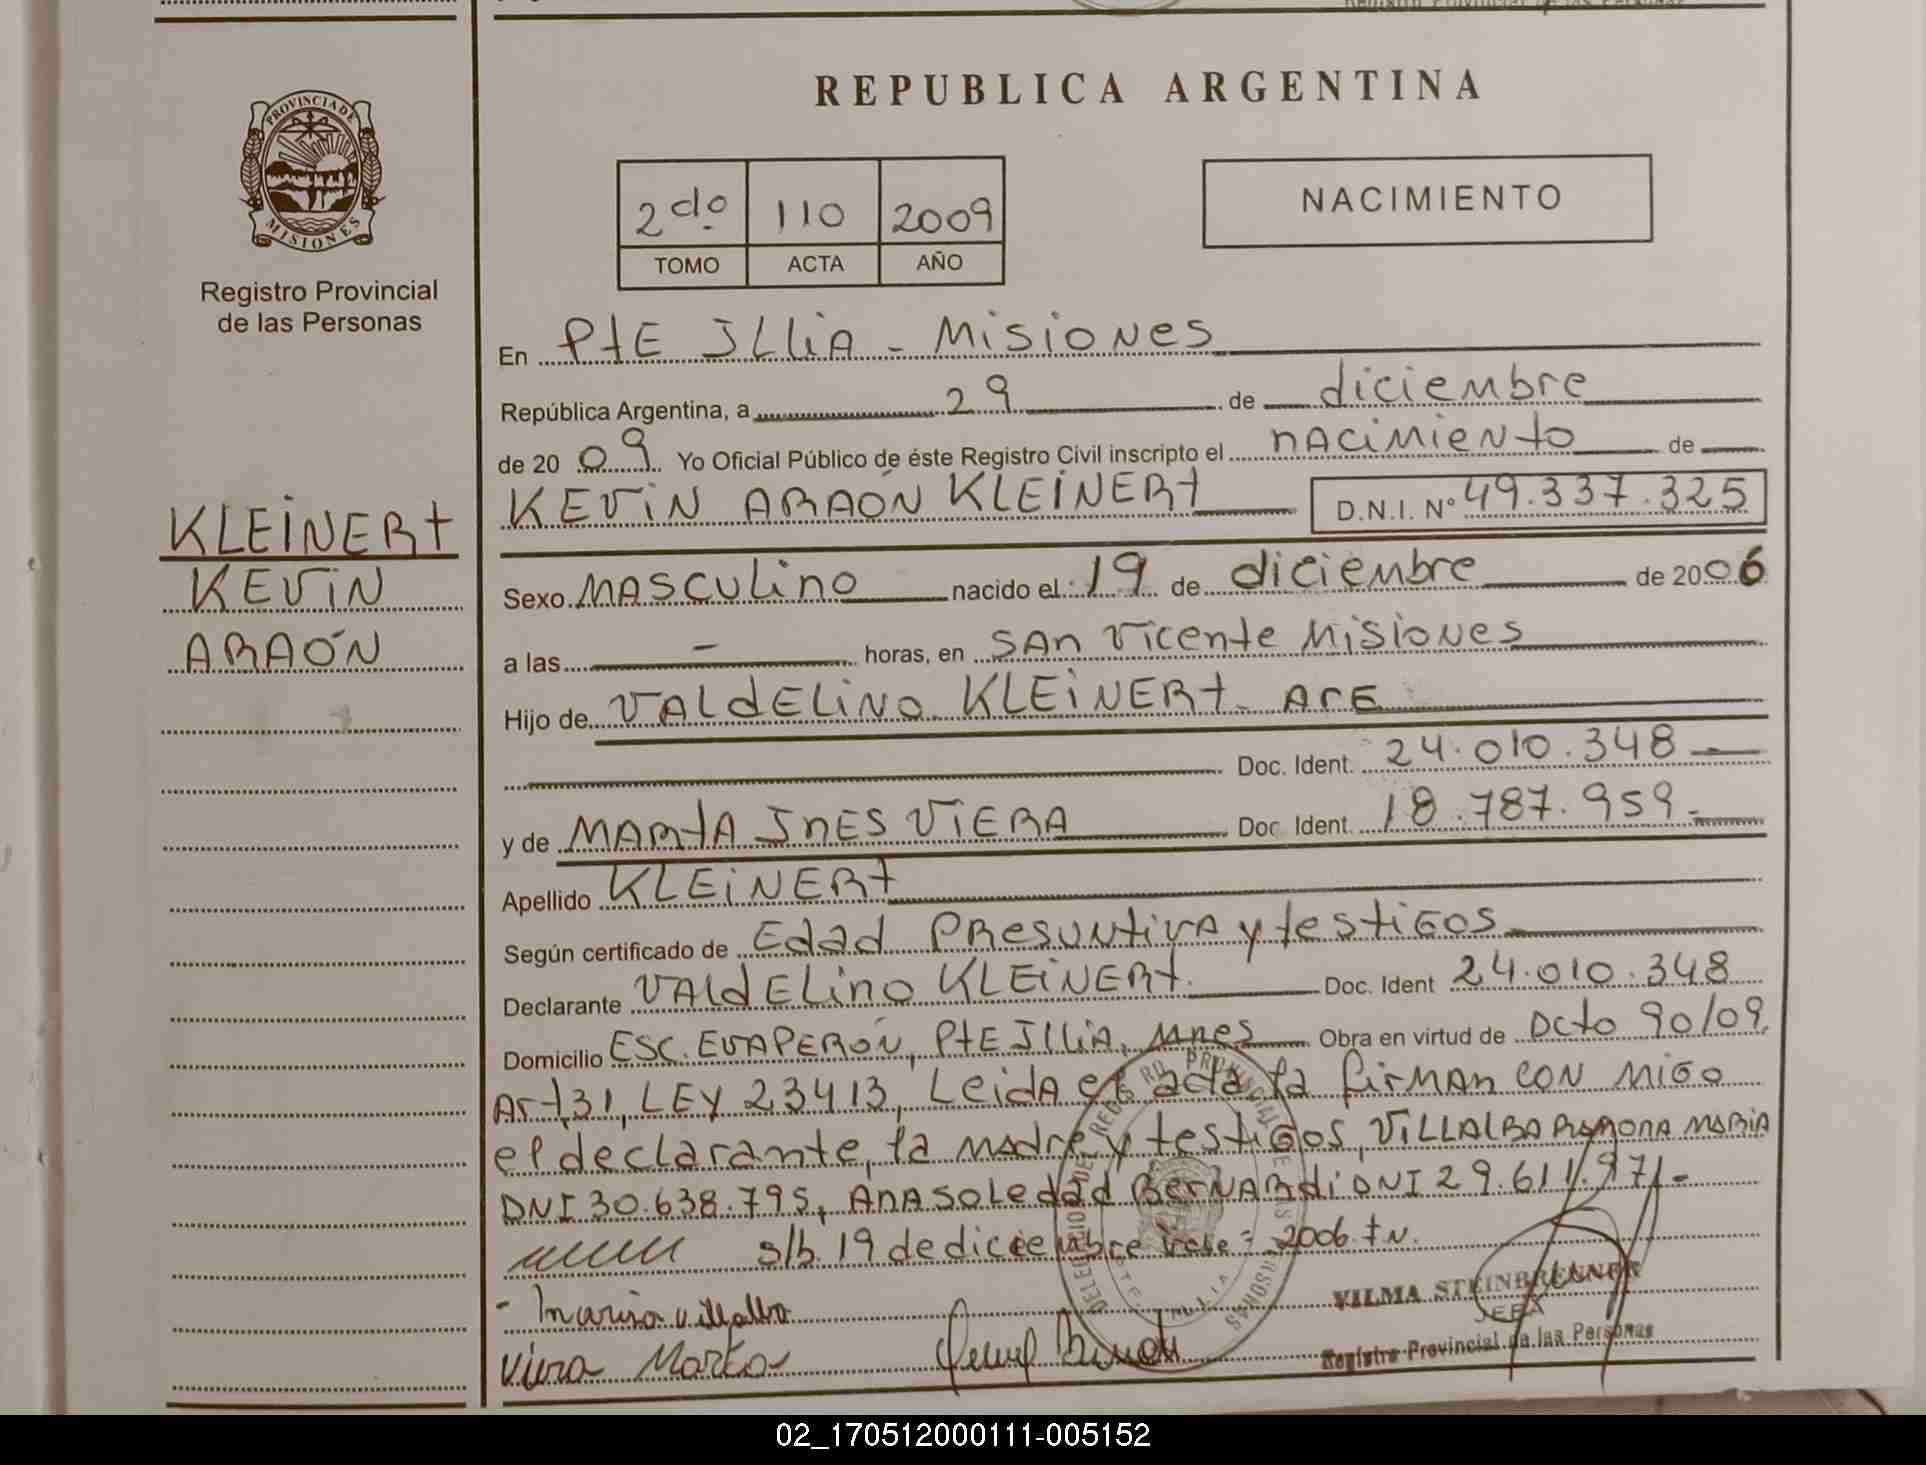 REPUBLICA ARGENTINA
PROVINCIA DE MISIONES
Registro Provincial
de las Personas
2do. 110 2009
TOMO ACTA AÑO
NACIMIENTO
En PtE JLLiA - MisioNes
República Argentina, a 29 de diciembre
de 20 09 Yo Oficial Público de éste Registro Civil inscripto el nAciMieNto de
KEViN ARAÓN KLEiNERt D.N.I. Nº 49.337.325
KLEiNERt
KEViN
ARAÓN
Sexo MASCULiNO nacido el 19 de diciembre de 2006
a las - horas, en SAn Vicente MisioNes
Hijo de VALdELiNO KLEiNERt ArE
Doc. Ident. 24.010.348
y de MARtA JnES ViERA Doc. Ident. 18.787.959
Apellido KLEiNERt
Según certificado de Edad PResuNtiVA y testiGos
Declarante VALdELiNO KLEiNERt. Doc. Ident 24.010.348
Domicilio ESC. EVAPERÓN, PtE JLLiA, Mnes Obra en virtud de Dcto 90/09,
Art 31, LEY 23413, LeidA el acta la firMAn CON MiGo
el declarante, la madre y testiGos, ViLLALBA RAMONA MARiA
DNI 30.638.795, ANA SOLedad BerNARdi DNI 29.611.971-
s/b. 19 de diciembre vale = 2006. tN.
- Marisa Villalba
VILMA STEINBRENNER
JEFA
Registro Provincial de las Personas
Viera Marta
02_170512000111-005152